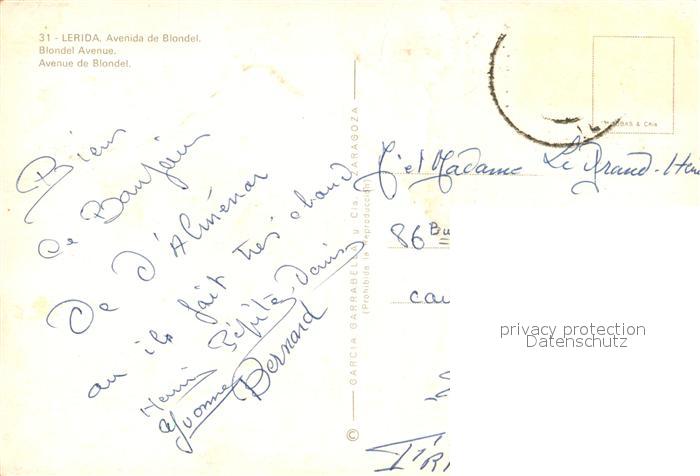 31 - LERIDA. Avenida de Blondel.
Blondel Avenue.
Avenue de Blondel.
Bien
Ce Bonjour
De D'Almenar
au ils fait très chaud
Henri Pépita Denis
Yvonne Bernard
© GARCIA GARRABELLA y Cia. ZARAGOZA
(Prohibida la Reproducción)
M et Madame Le Grand-Hen
86 Bu
cau
privacy protection
Datenschutz